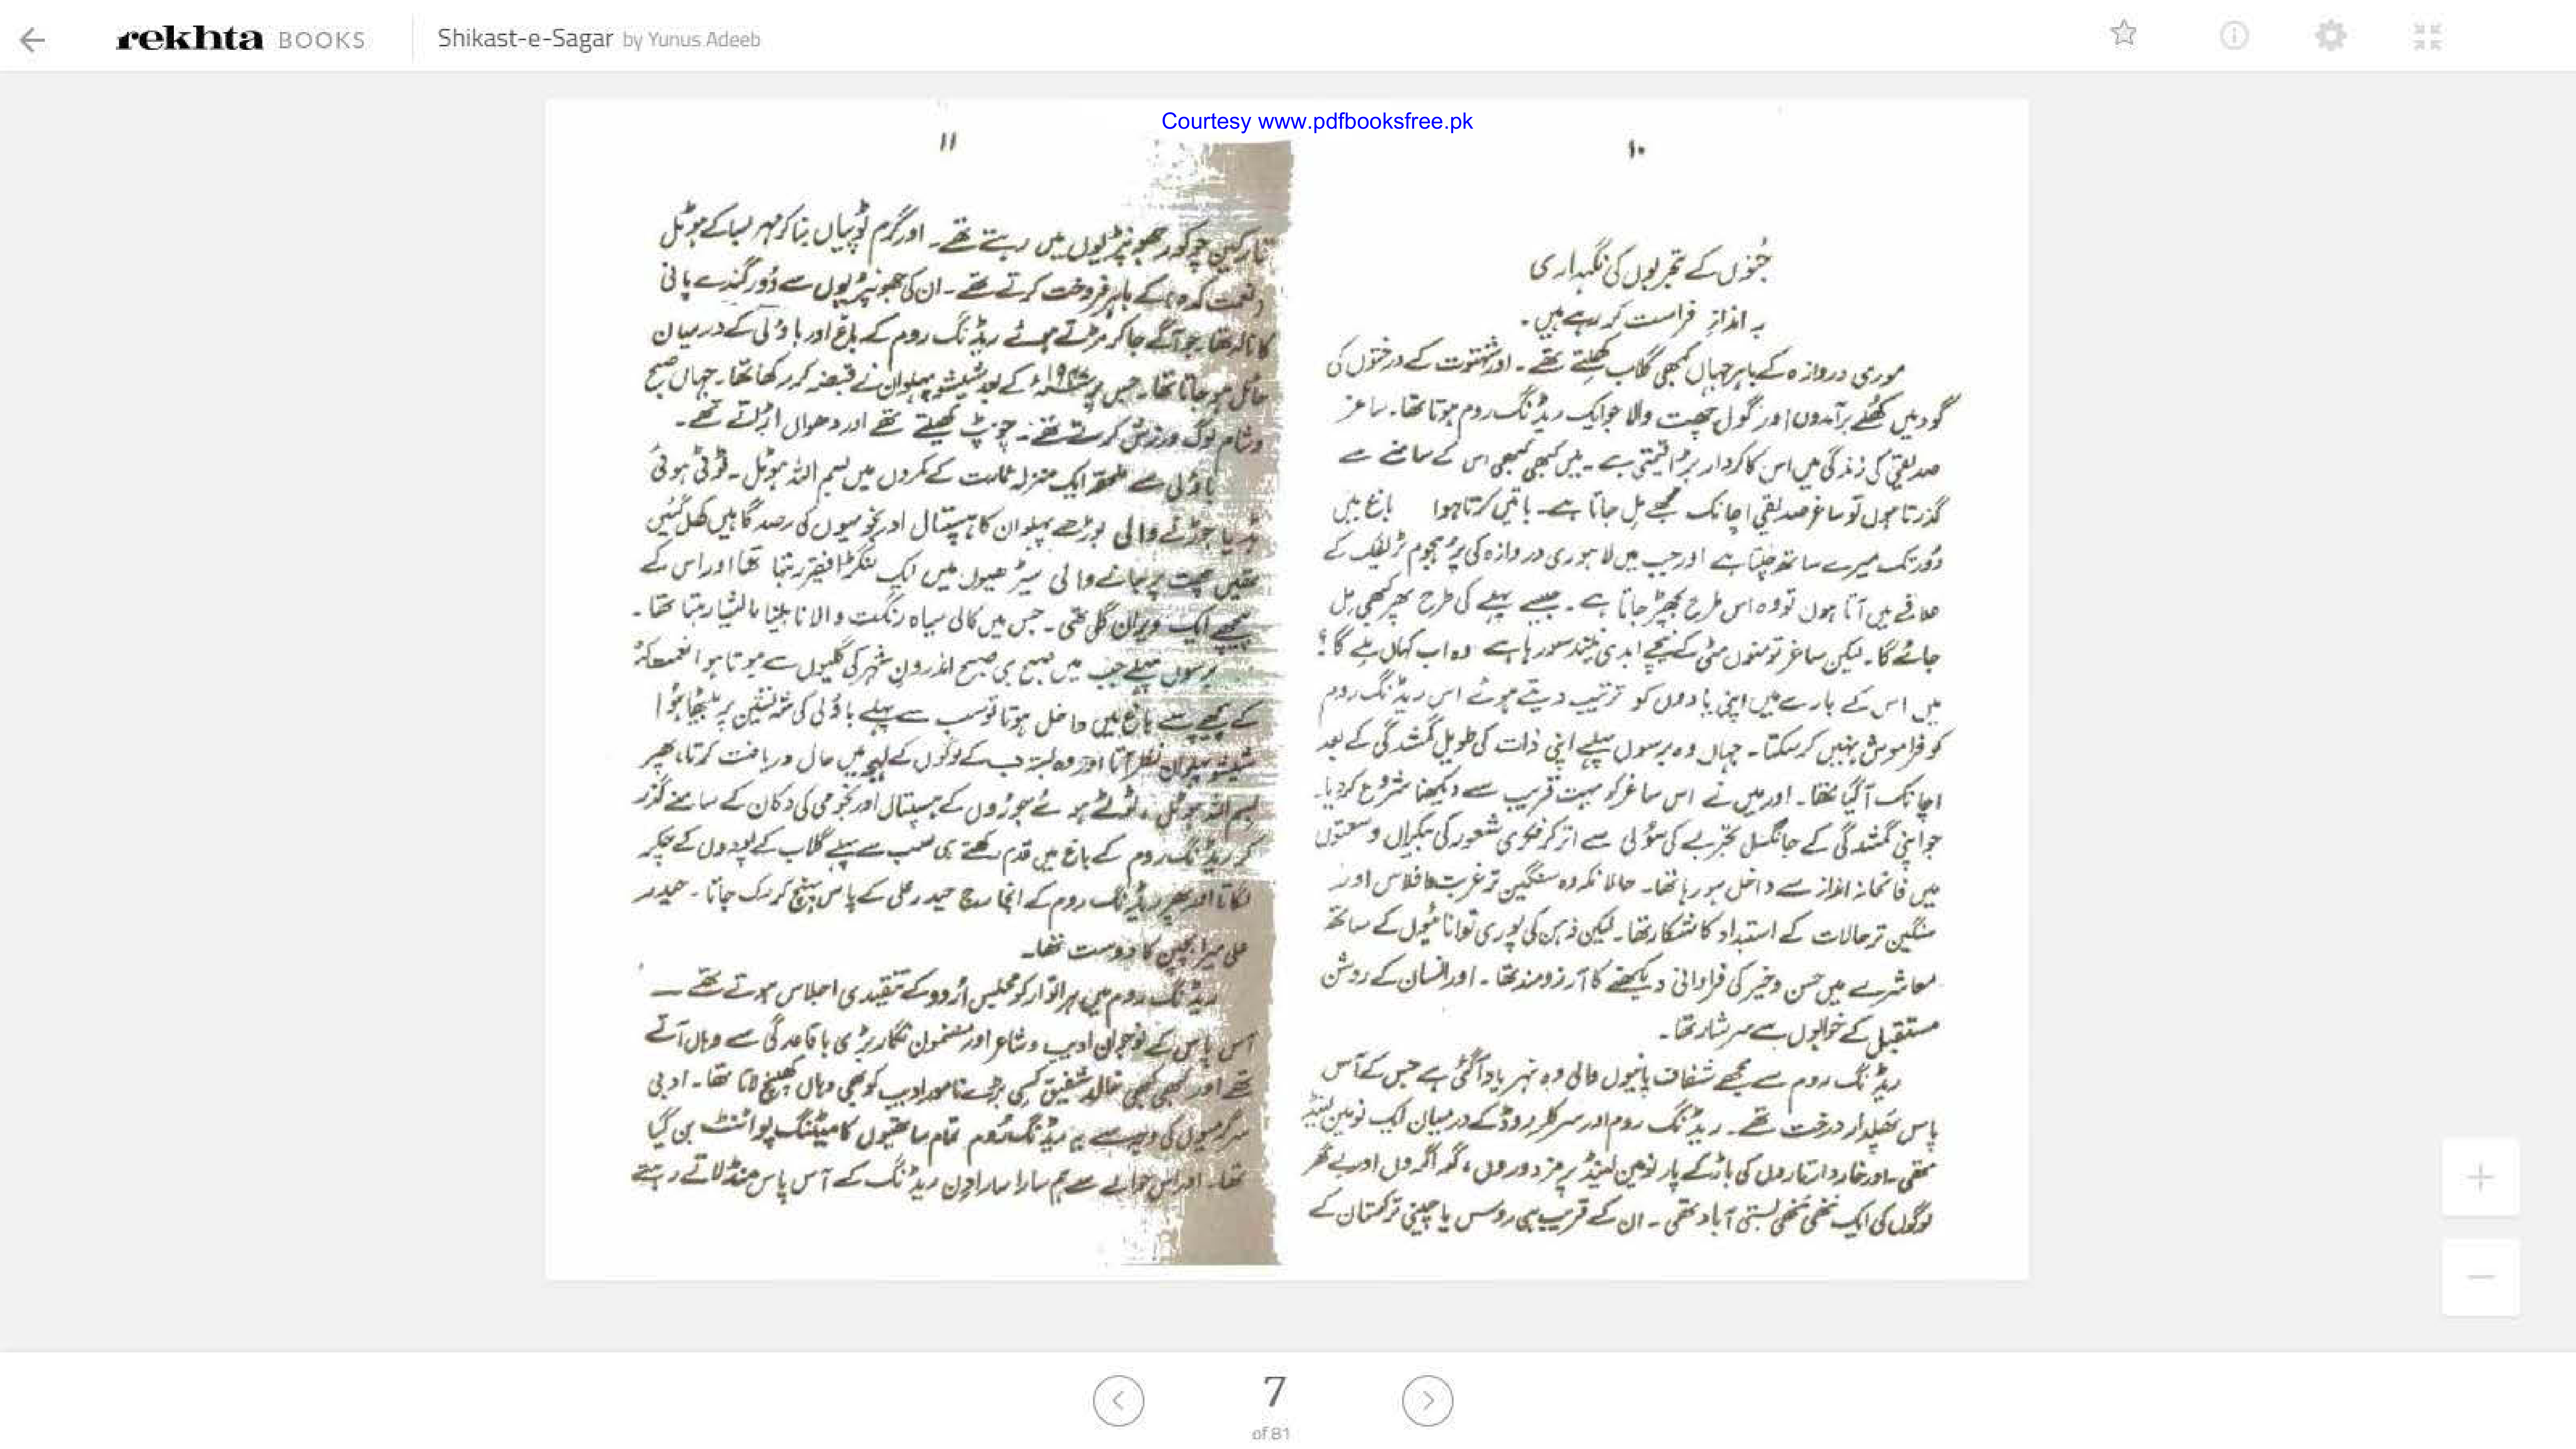 rekhta BOOKS
Shikast-e-Sagar by Yunus Adeeb
Courtesy www.pdfbooksfree.pk
۱۰
جُنوں کے تجربوں کی نگہداری
بہ اندازِ فراست کر رہے ہیں۔
موری دروازہ کے باہر جہاں کبھی گلاب کھلتے تھے۔ اور شہتوت کے درختوں کی
گود میں کھُلے برآمدوں اور گول چھت والا جو ایک ریڈنگ روم ہوتا تھا۔ ساغر
صدیقی کی زندگی میں اس کا کردار بڑا قیمتی ہے۔ میں کبھی کبھی اس کے سامنے سے
گذرتا ہوں تو ساغر صدیقی اچانک مجھے مل جاتا ہے۔ باتیں کرتا ہوا باغ میں
دُور تک میرے ساتھ چلتا ہے اور جب میں لاہوری دروازہ کی پُر ہجوم ٹریفک کے
علاقے میں آتا ہوں تو وہ اس طرح بچھڑ جاتا ہے۔ جیسے پہلے کی طرح پھر کبھی مل
جائے گا۔ لیکن ساغر تو منوں مٹی کے نیچے ابدی نیند سو رہا ہے وہ اب کہاں ملے گا؟
میں اس کے بارے میں اپنی یادوں کو ترتیب دیتے ہوئے اس ریڈنگ روم
کو فراموش نہیں کر سکتا۔ جہاں وہ برسوں پہلے اپنی ذات کی طویل گمشدگی کے بعد
اچانک آ گیا تھا۔ اور میں نے اس ساغر کو بہت قریب سے دیکھنا شروع کر دیا۔
جو اپنی گمشدگی کے جانگسل تجربے کی سُولی سے اتر کر فکری شعور کی بیکراں وسعتوں
میں فاتحانہ انداز سے داخل ہو رہا تھا۔ حالانکہ وہ سنگین تر غربت و افلاس اور
سنگین تر حالات کے استبداد کا شکار تھا۔ لیکن ذہن کی پوری توانائیوں کے ساتھ
معاشرے میں حسن و خیر کی فراوانی دیکھنے کا آرزو مند تھا۔ اور انسان کے روشن
مستقبل کے خوابوں سے سرشار تھا۔
ریڈنگ روم سے مجھے شفاف پانیوں والی وہ نہر یاد آ گئی ہے جس کے آس
پاس پھلدار درخت تھے۔ ریڈنگ روم اور سرکلر روڈ کے درمیان ایک نومین لینڈ
تھی۔ اور خاردار تاروں کی باڑ کے پار نومین لینڈ پر مزدوروں، گداگروں اور بے گھر
لوگوں کی ایک ننھی مُنھی بستی آباد تھی۔ ان کے قریب ہی روس یا چینی ترکستان کے
۱۱
تارکین چوکور جھونپڑیوں میں رہتے تھے۔ اور گرم ٹوپیاں بنا کر مہر لسبا کے ہوٹل
(نعمت کدہ) کے باہر فروخت کرتے تھے۔ ان کی جھونپڑیوں سے دُور گندے پانی
کا نالہ تھا۔ جو آگے جا کر مڑتے ہوئے ریڈنگ روم کے باغ اور باؤلی کے درمیان
حائل ہو جاتا تھا۔ جس پر ۱۹۴۷ء کے بعد شیشو پہلوان نے قبضہ کر رکھا تھا۔ جہاں صبح
و شام لوگ ورزش کرتے تھے۔ چوپٹ کھیلتے تھے اور دھواں اڑاتے تھے۔
باؤلی سے ملحقہ ایک منزلہ عمارت کے کمروں میں بسم اللہ ہوٹل۔ ٹوٹی ہوئی
ہڈیاں جوڑنے والی بوڑھے پہلوان کا ہسپتال اور نجومیوں کی رصد گاہیں کھل گئیں
تھیں چھت پر جانے والی سیڑھیوں میں ایک لنگڑا فقیر رہتا تھا اور اس کے
پیچھے ایک ویران گلی تھی۔ جس میں کالی سیاہ رنگت والا نابینا مالشیا رہتا تھا۔
برسوں پہلے جب میں صبح ہی صبح اندرونِ شہر کی گلیوں سے ہوتا ہوا نعمت کدہ
کے پیچھے سے باغ میں داخل ہوتا تو سب سے پہلے باؤلی کی شہ نشین پر بیٹھا ہُوا
شیشو پہلوان نظر آتا اور وہ لبتہ حب کے لوگوں کے لہجہ میں حال دریافت کرتا، پھر
بسم اللہ ہوٹل، ٹوٹے ہوئے جوڑوں کے ہسپتال اور نجومی کی دکان کے سامنے گذر
کر ریڈنگ روم کے باغ میں قدم رکھتے ہی سب سے پہلے گلاب کے پودوں کے چکر
لگاتا اور پھر ریڈنگ روم کے انچارج حیدر علی کے پاس پہنچ کر رک جاتا۔ حیدر
علی میرا بچپن کا دوست تھا۔
ریڈنگ روم میں ہر اتوار کو مجلس اُردو کے تنقیدی اجلاس ہوتے تھے —
آس پاس کے نوجوان ادیب و شاعر اور مضمون نگار بڑی باقاعدگی سے وہاں آتے
تھے اور کبھی کبھی خالد شفیق کسی بڑے نامور ادیب کو بھی وہاں کھینچ لاتا تھا۔ ادبی
سرگرمیوں کی وجہ سے یہ ریڈنگ رُوم تمام ساتھیوں کا میٹنگ پوائنٹ بن گیا
تھا۔ اور اس حوالے سے ہم سارا سارا دن ریڈنگ کے آس پاس منڈلاتے رہتے
7
of 81